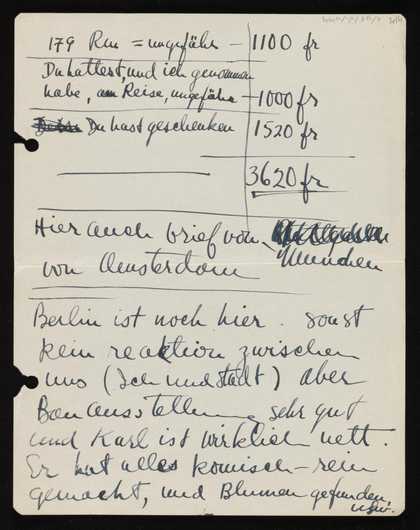 179 Rm = ungefähr – 1100 fr
Du hattest, und ich genommen
habe, am Reise, ungefähr – 1000 fr
Du hast geschenken 1520 fr
3620 fr
Hier auch brief von
von Amsterdam München
Berlin ist noch hier. sonst
kein reaktion zwischen
uns (Ich und stadt) aber
Bauausstellung sehr gut
und Karl ist wirklich nett.
Er hat alles komisch – rein
gemacht, und Blumen gefunden,
usw.